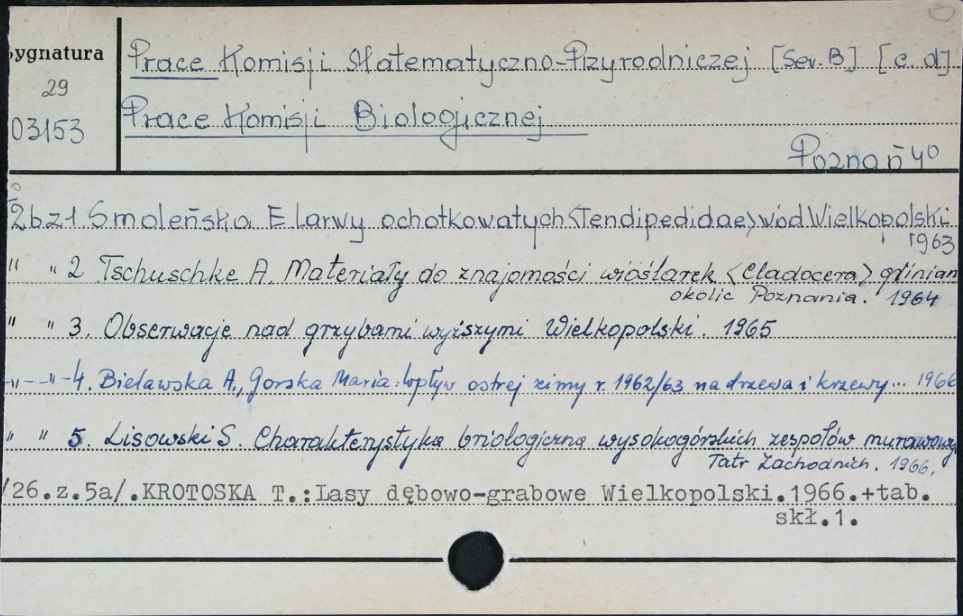 Sygnatura
29
03153
Prace Komisji Matematyczno-Przyrodniczej [Ser. B] [c. d]
Prace Komisji Biologicznej
Poznań 40
26 z 1 Smoleńska E. Larwy ochotkowatych <Tendipedidae> wód Wielkopolski
1963
" " 2 Tschuschke A. Materiały do znajomości wioślarek <Cladocera> glinian
okolic Poznania. 1964
" " 3. Obserwacje nad grzybami wyższymi Wielkopolski. 1965
-"-"-4. Bielawska A., Gorska Maria: wpływ ostrej zimy r. 1962/63 na drzewa i krzewy... 1966
" " 5. Lisowski S. Charakterystyka briologiczna wysokogórskich zespołów murawowych
Tatr Zachodnich. 1966.
/26.z.5a/.KROTOSKA T.:Lasy dębowo-grabowe Wielkopolski.1966.+tab.
skł.1.